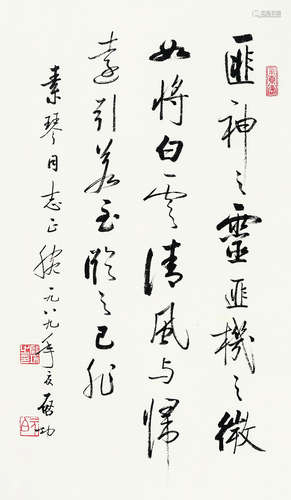 匪神之靈匪機之微
如將白雲清風與歸
遠引若至臨之已非
素琴同志正腕一九八九年夏啟功